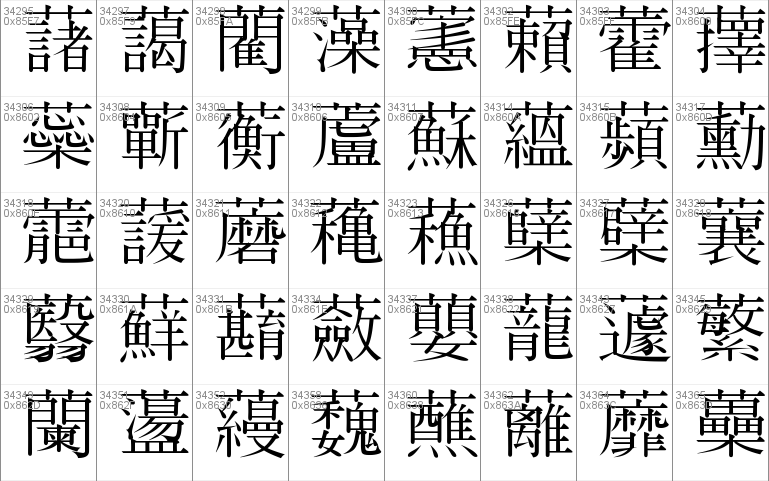 34295 34297 34298 34299 34300 34302 34303 34304
0x85F7 0x85F9 0x85FA 0x85FB 0x85FC 0x85FE 0x85FF 0x8600
藷 藹 藺 藻 藼 藾 藿 蘀
34306 34308 34309 34310 34311 34314 34315 34317
0x8602 0x8604 0x8605 0x8606 0x8607 0x860A 0x860B 0x860D
蘂 蘄 蘅 蘆 蘇 蘊 蘋 蘍
34320 34321 34322 34323 34326 34327 34328
0x8610 0x8611 0x8612 0x8613 0x8616 0x8617 0x8618
蘐 蘑 蘒 蘓 蘖 蘗 蘘
34329 34330 34331 34334 34337 34338 34343 34345
0x8619 0x861A 0x861B 0x861E 0x8621 0x8622 0x8627 0x8629
蘙 蘚 蘛 蘞 蘡 蘢 蘧 蘩
34349 34351 34352 34358 34360 34362 34364 34365
0x862D 0x862F 0x8630 0x8636 0x8638 0x863A 0x863C 0x863D
蘭 蘯 蘰 蘶 蘸 蘺 蘼 蘽